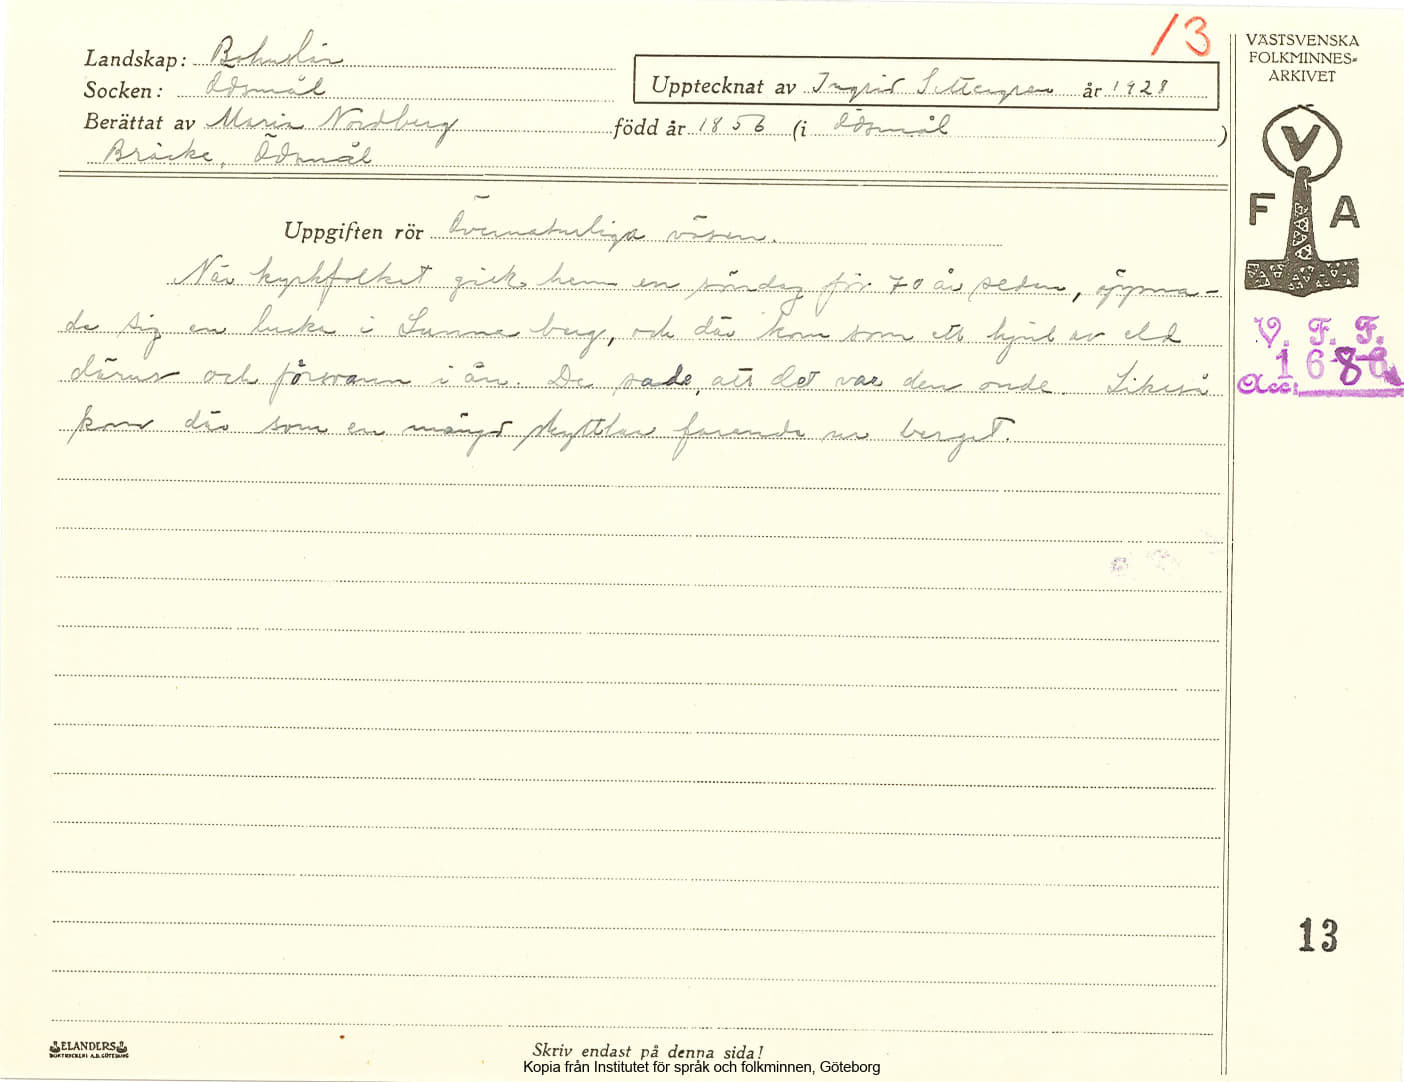 13
Landskap: Bohuslän
Socken: Ödsmål
Upptecknat av Ingrid Settergren år 1928
Berättat av Maria Nordberg född år 1856 (i Ödsmål)
Bräcke, Ödsmål
Uppgiften rör Övernaturliga väsen.
När kyrkfolket gick hem en söndag för 70 år sedan, öppna-
de sig en lucka i Sunna berg, och där kom som ett hjul av eld
därur och försvann i ån. De sade, att det var den onde. Likeså
kom där som en mängd skyttlar farande ur berget.
VÄSTSVENSKA
FOLKMINNES-
ARKIVET
V
F A
V. F. F.
168
Acc:
13
ELANDERS
BOKTRYCKERI A.B. GÖTEBORG
Skriv endast på denna sida!
Kopia från Institutet för språk och folkminnen, Göteborg